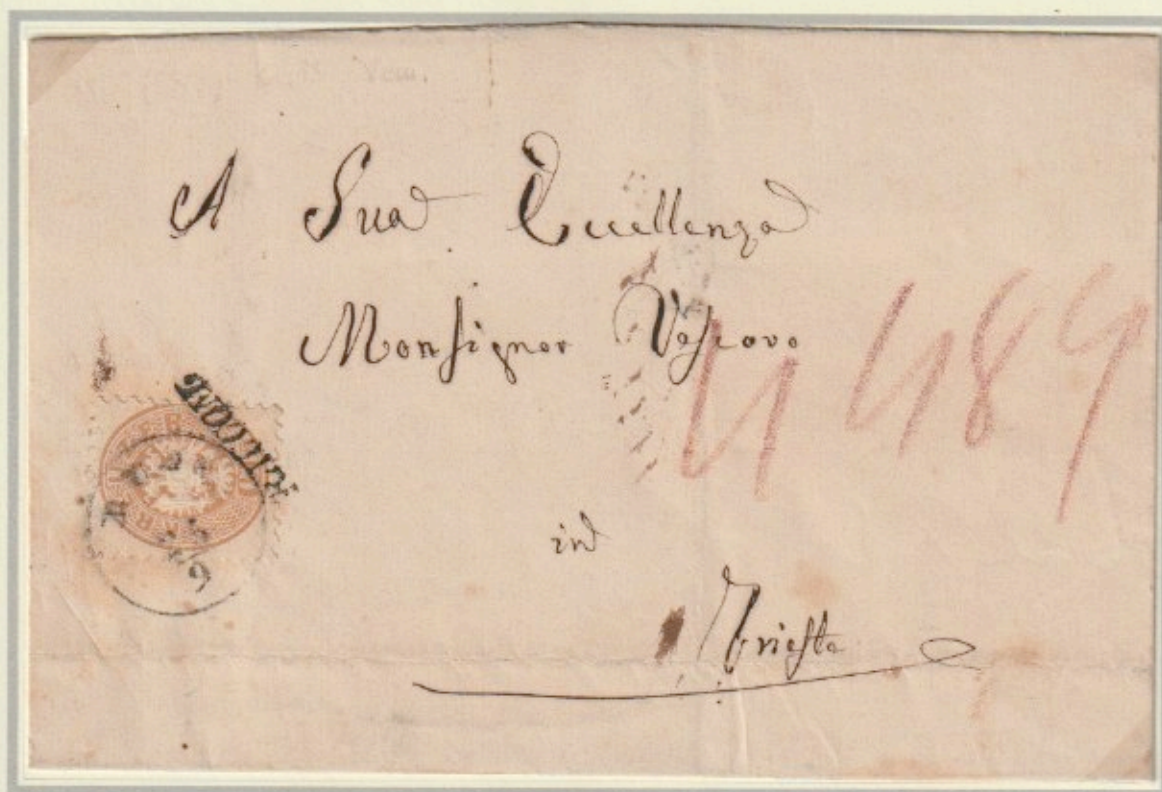 A Sua Eccellenza
Monsignor Vescovo
4489
in
Trieste